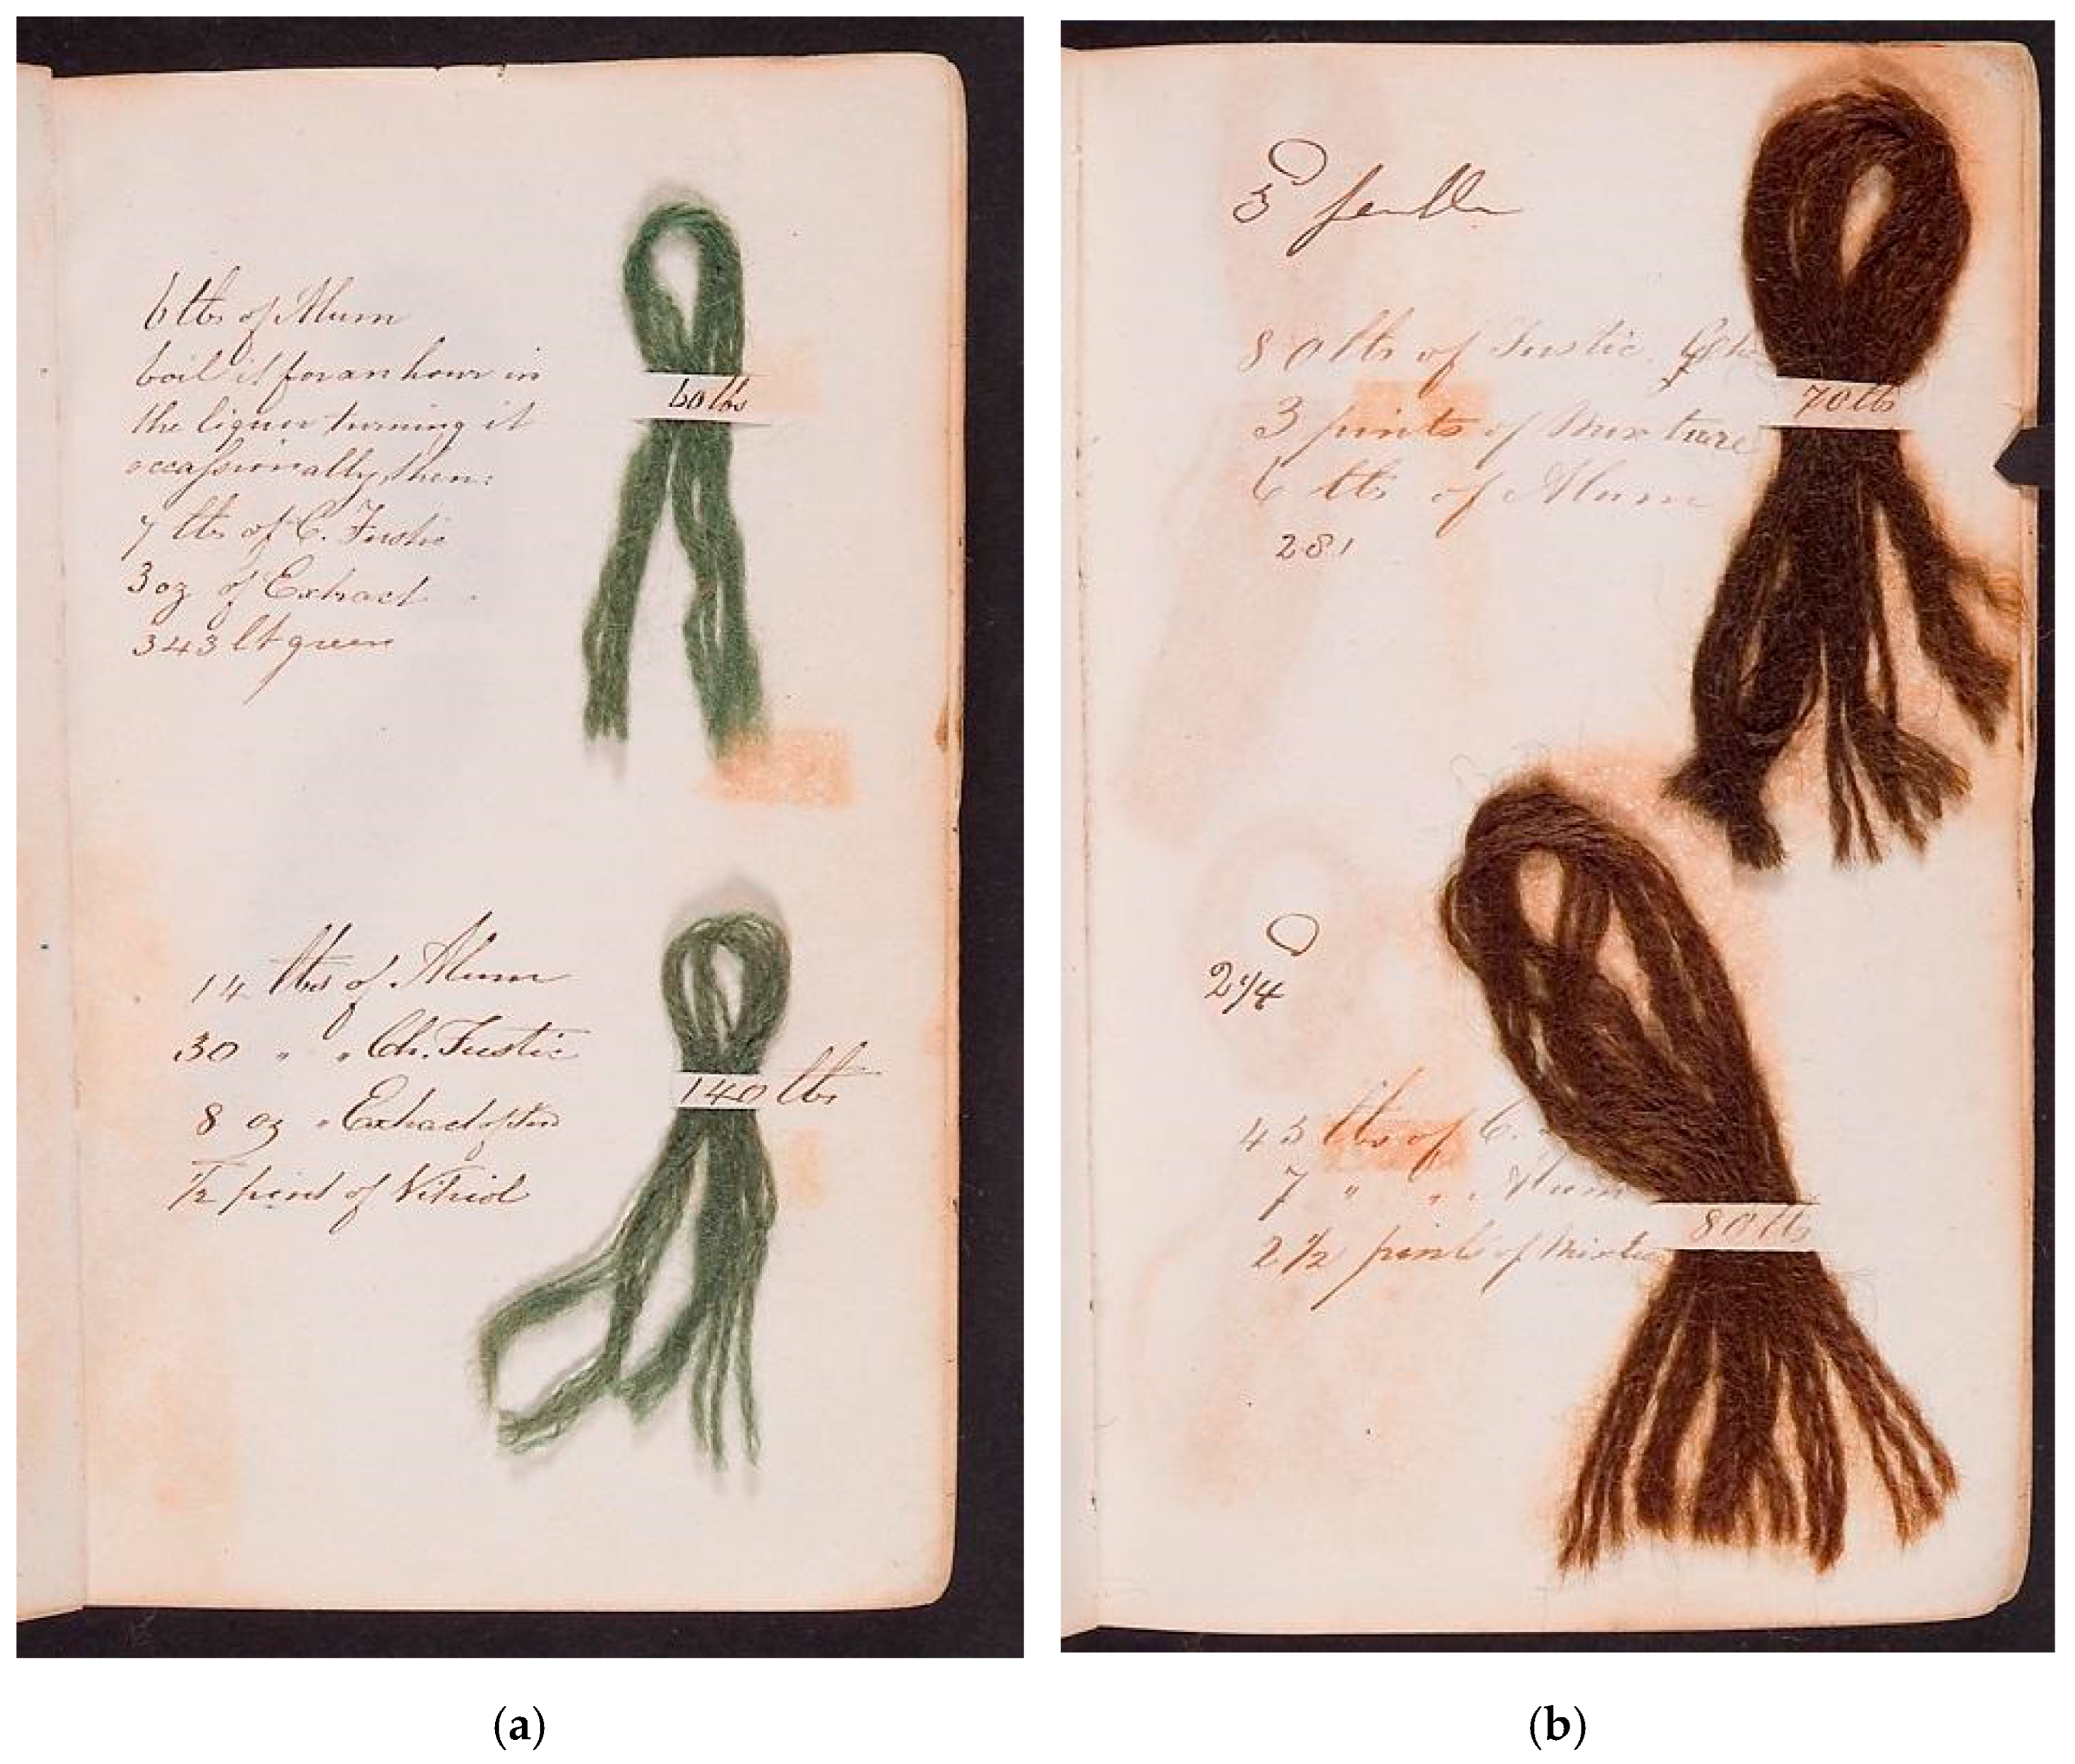 6 lbs of Alum
boil it for an hour in
the liquor turning it
occassionally, then:
7 lbs of C. Fustic
3 oz of Extract
343 lt green
60 lbs
14 lbs of Alum
30 " " Ch. Fustic
8 oz " Extract
1/2 pint of Vitriol
140 lbs
(a)
3
80 lbs of Fustic
3 pints of Mixture
6 lbs of Alum
281
70 lb
2 1/4
43 lbs of C.
7 " " Alum
2 1/2 pints of
80 lb
(b)